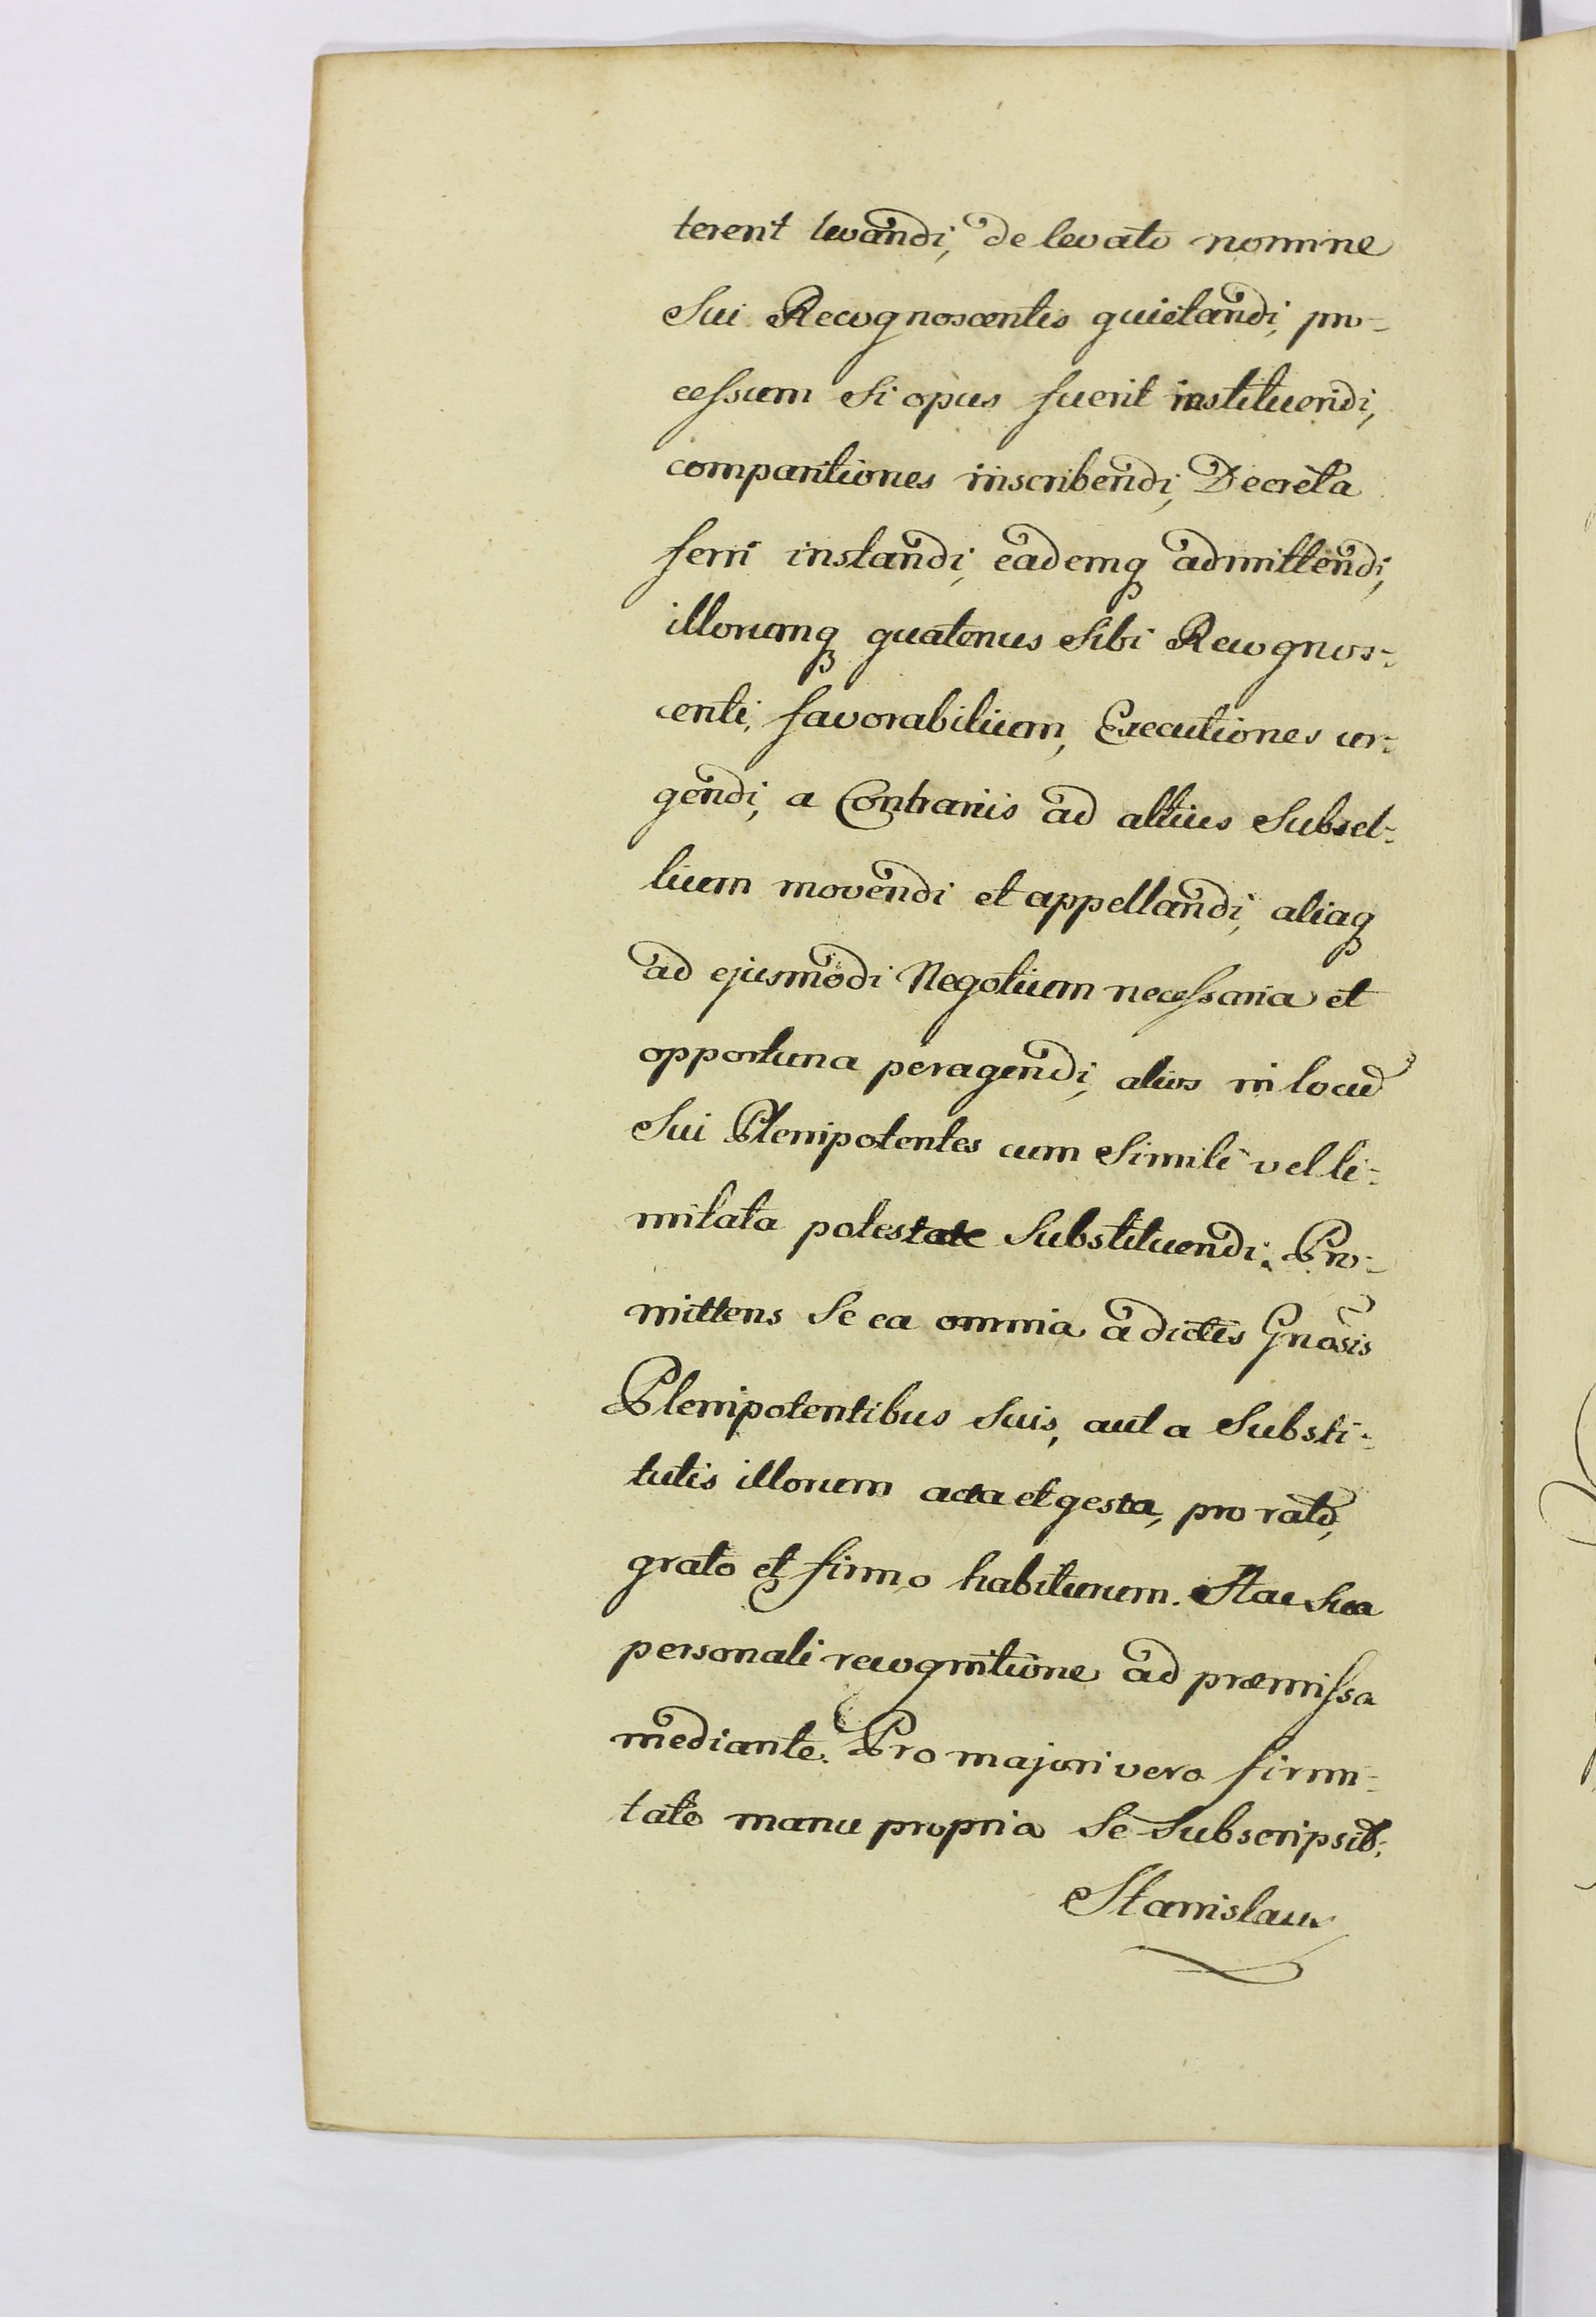 terent levandi, de levato nomine
Sui Recognoscentis quietandi, pro-
cessum Si opus fuerit instituendi,
comparitiones inscribendi, Decreta
ferri instandi, eademq admittendi,
illorumq quatenus Sibi Recognos-
centi, favorabilium, Executiones ur-
gendi, a Contrariis ad altius Subsel-
lium movendi et appellandi, aliaq
ad ejusmodi Negotium necessaria et
opportuna peragendi, alios in locū
Sui Plenipotentes cum Simili vel li-
mitata potestate Substituendi. Pro-
mittens Se ea omnia a dictis Gnosis
Plenipotentibus Suis, aut a Substi-
tutis illorum acta et gesta, pro rato,
grato et firmo habiturum. Hac Sua
personali recognitione ad præmissa
mediante. Pro majori vero firmi-
tate manu propria Se Subscripsit.
Stanislaus